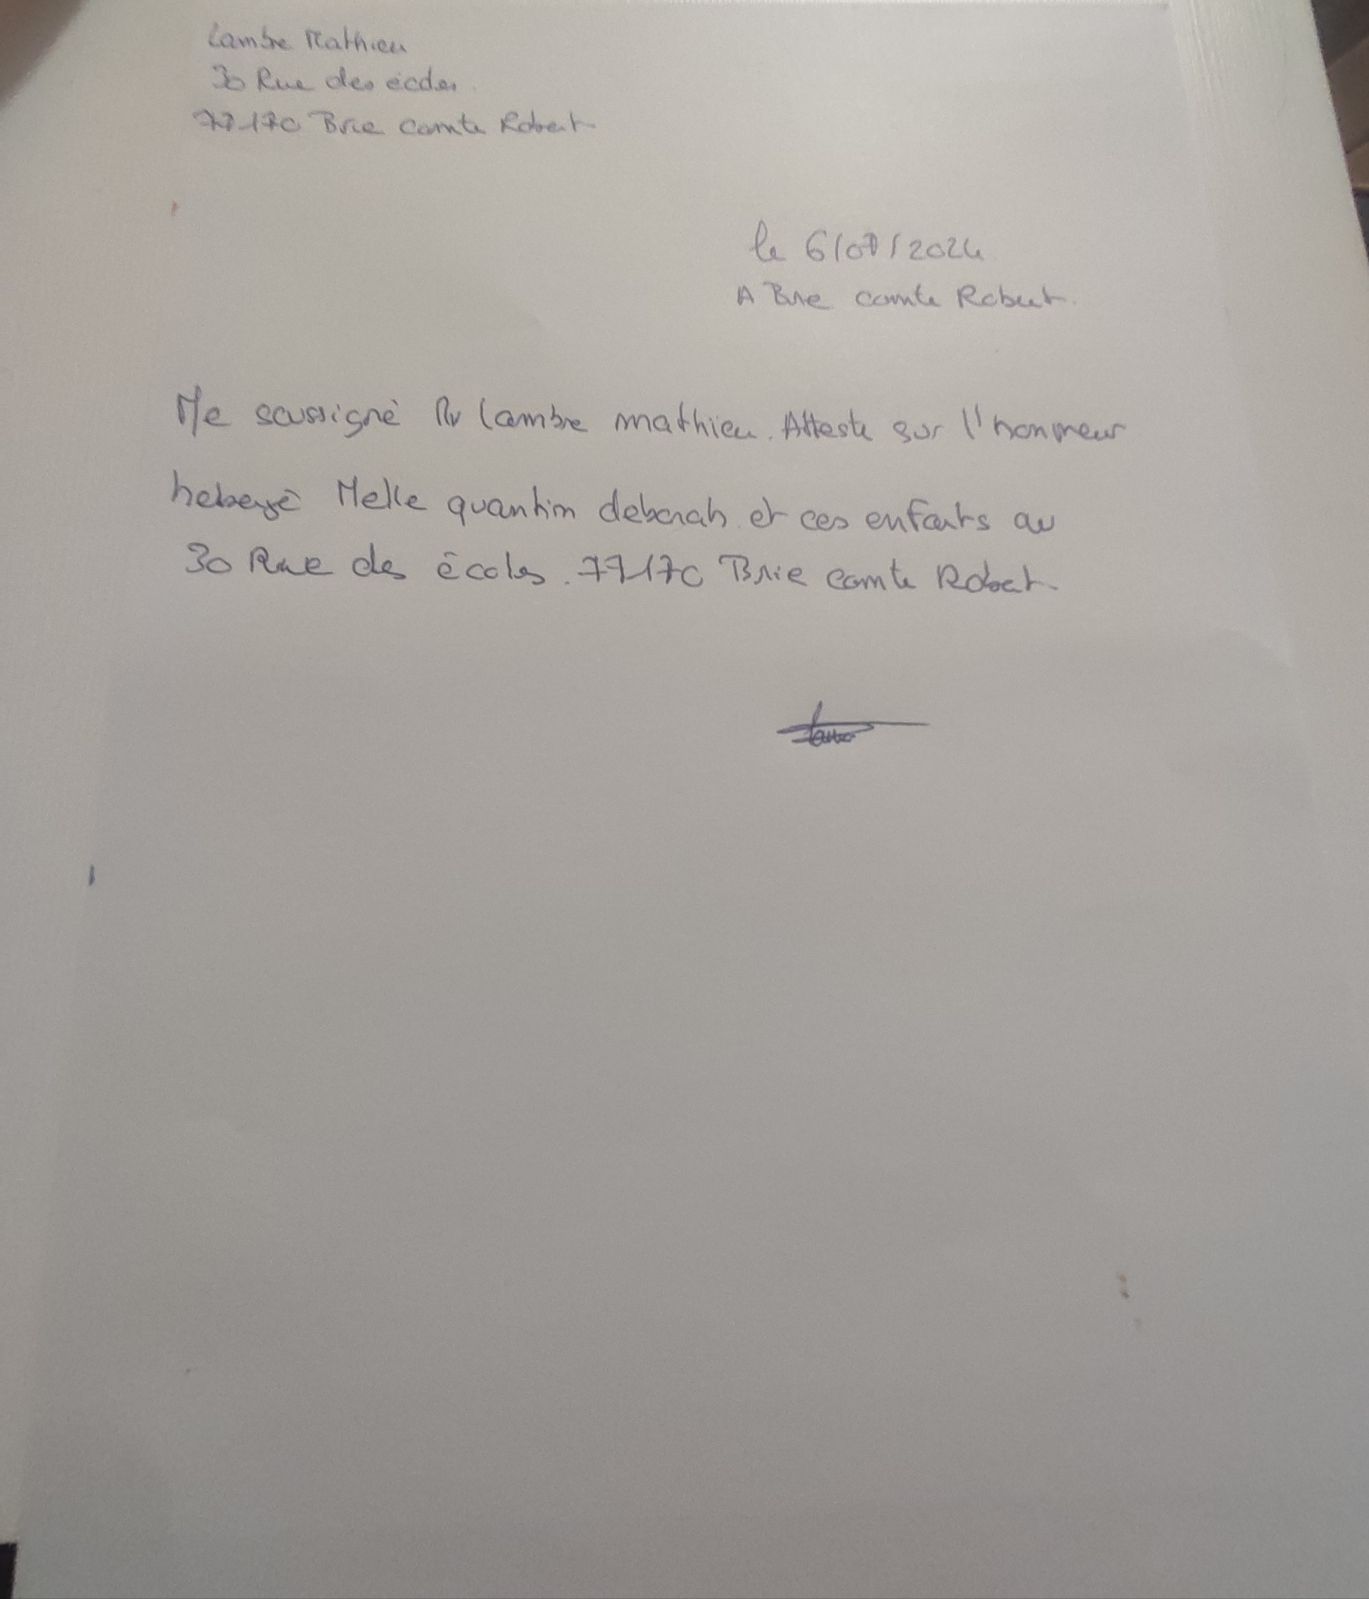 Lambre Mathieu
30 Rue des écoles
77170 Brie comte Robert
le 6/07/2024
A Brie comte Robert.
Me soussignè Mr Lambre mathieu. Atteste sur l'honneur
hebergé Melle quantin deborah et ces enfants au
30 Rue des écoles. 77170 Brie comte Robert.